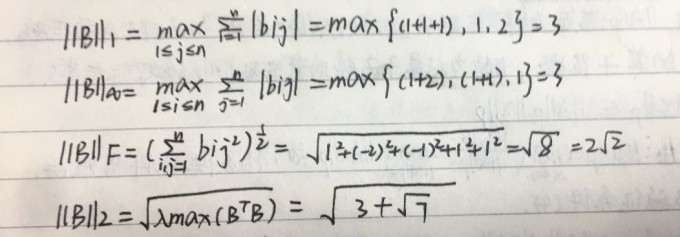 ||B||₁ = max_{1≤j≤n} Σ_{i=1}^{n} |bij| = max{(1+1+1), 1, 2} = 3
||B||∞ = max_{1≤i≤n} Σ_{j=1}^{n} |bij| = max{(1+2), (1+1), 1} = 3
||B||F = (Σ_{i,j=1}^{n} bij²)^{1/2} = √(1²+(-2)²+(-1)²+1²+1²) = √8 = 2√2
||B||2 = √(λmax(BᵀB)) = √(3+√7)